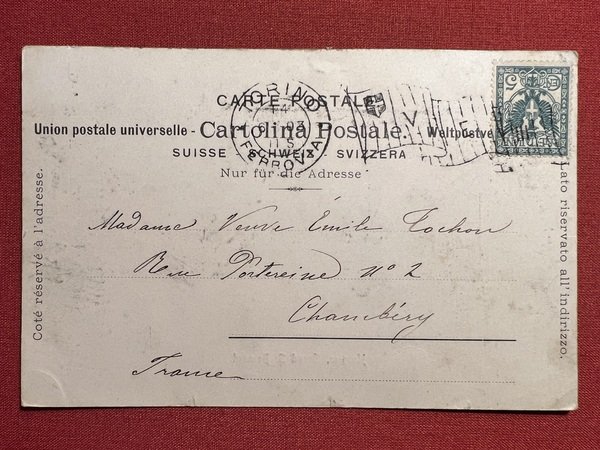 CARTE POSTALE
Union postale universelle - Cartolina Postale. Weltpostve
SUISSE - SCHWEIZ - SVIZZERA
Nur für die Adresse
TORINO
FERROVIA
Coté réservé à l'adresse.
lato riservato all'indirizzo.
Madame Veuve Émile Tochon
Rue Portereine No 2
Chambéry
France